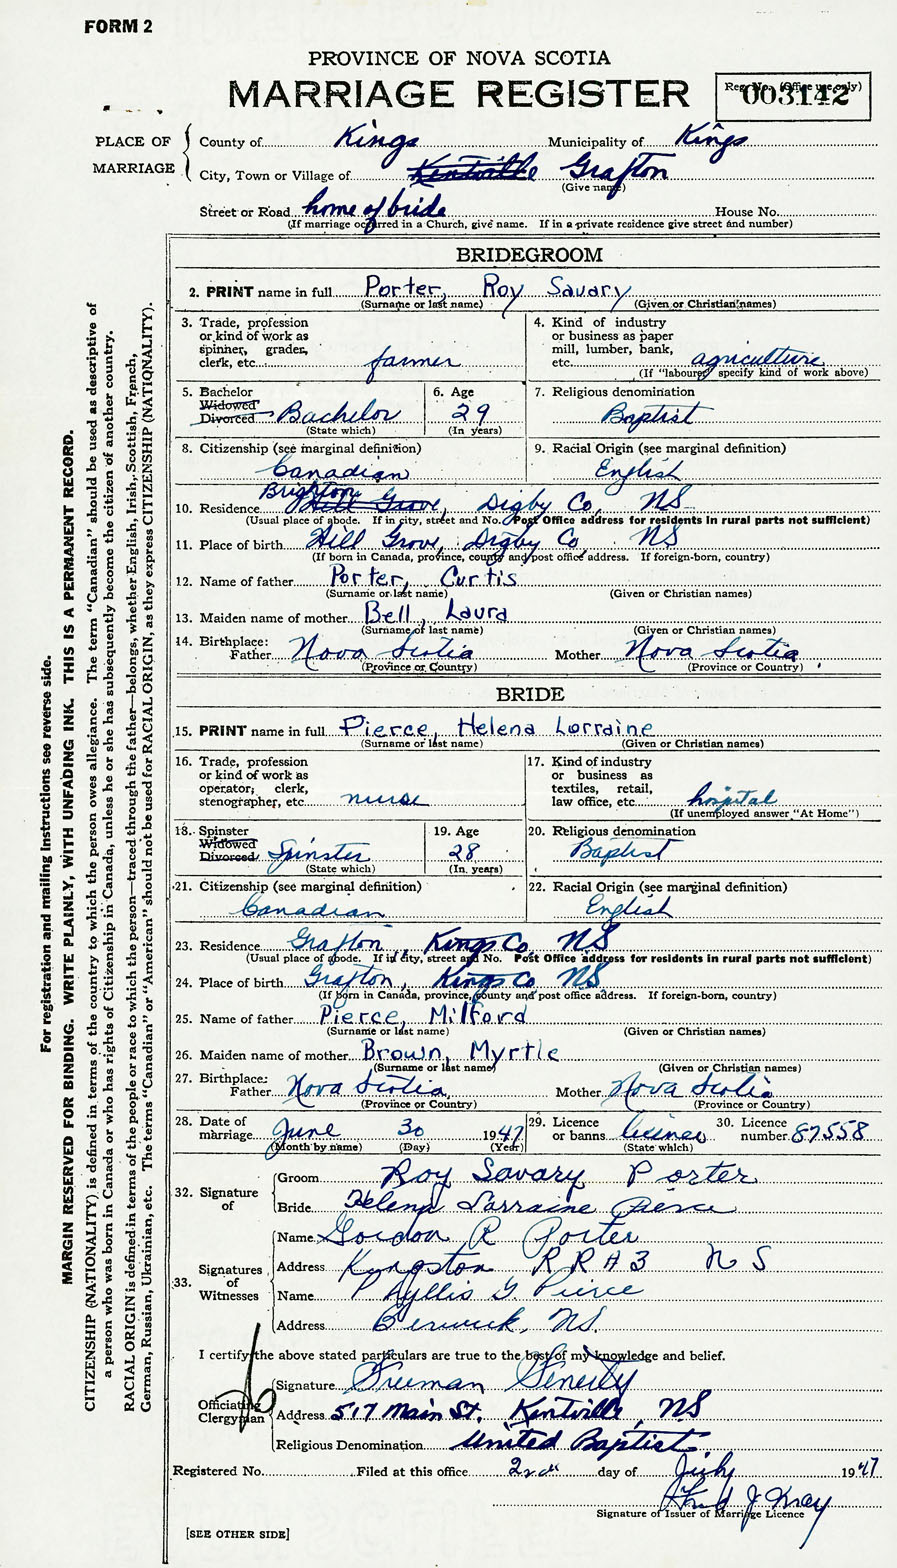 FORM 2
PROVINCE OF NOVA SCOTIA
MARRIAGE REGISTER
Reg. No. (Office use only)
003142
PLACE OF MARRIAGE
County of Kings Municipality of Kings
City, Town or Village of Kentville Grafton
(Give name)
Street or Road home of bride House No.
(If marriage occurred in a Church, give name. If in a private residence give street and number)
BRIDEGROOM
2. PRINT name in full Porter, Roy Savary
(Surname or last name) (Given or Christian names)
3. Trade, profession or kind of work as spinner, grader, clerk, etc. farmer
4. Kind of industry or business as paper mill, lumber, bank, etc. agriculture
(If "labourer" specify kind of work above)
5. Bachelor Widowed Divorced Bachelor
(State which)
6. Age 29
(In years)
7. Religious denomination
Baptist
8. Citizenship (see marginal definition)
Canadian
9. Racial Origin (see marginal definition)
English
Brighton
10. Residence Hill Grove, Digby Co, NS
(Usual place of abode. If in city, street and No. Post Office address for residents in rural parts not sufficient)
11. Place of birth Hill Grove, Digby Co NS
(If born in Canada, province, county and post office address. If foreign-born, country)
12. Name of father Porter, Curtis
(Surname or last name) (Given or Christian names)
13. Maiden name of mother Bell, Laura
(Surname of last name) (Given or Christian names)
14. Birthplace:
Father Nova Scotia Mother Nova Scotia
(Province or Country) (Province or Country)
BRIDE
15. PRINT name in full Pierce, Helena Lorraine
(Surname or last name) (Given or Christian names)
16. Trade, profession or kind of work as operator, clerk, stenographer, etc. nurse
17. Kind of industry or business as textiles, retail, law office, etc. hospital
(If unemployed answer "At Home")
18. Spinster Widowed Divorced Spinster
(State which)
19. Age 28
(In years)
20. Religious denomination
Baptist
21. Citizenship (see marginal definition)
Canadian
22. Racial Origin (see marginal definition)
English
23. Residence Grafton, Kings Co, NS
(Usual place of abode. If in city, street and No. Post Office address for residents in rural parts not sufficient)
24. Place of birth Grafton, Kings Co NS
(If born in Canada, province, county and post office address. If foreign-born, country)
25. Name of father Pierce, Milford
(Surname or last name) (Given or Christian names)
26. Maiden name of mother Brown, Myrtle
(Surname or last name) (Given or Christian names)
27. Birthplace:
Father Nova Scotia Mother Nova Scotia
(Province or Country) (Province or Country)
28. Date of marriage June 30 1947
(Month by name) (Day) (Year)
29. Licence or banns license
(State which)
30. Licence number 87558
32. Signature of
Groom Roy Savary Porter
Bride Helena Larraine Pierce
33. Signatures of Witnesses
Name Gordon R Porter
Address Kingston R R # 3 N S
Name Phyllis G Pierce
Address Berwick, NS.
I certify the above stated particulars are true to the best of my knowledge and belief.
Officiating Clergyman
Signature Freeman Fenerty
Address 517 Main St. Kentville, NS
Religious Denomination United Baptist.
Registered No. Filed at this office 2nd day of July 1947
Signature of Issuer of Marriage Licence
[SEE OTHER SIDE]
For registration and mailing instructions see reverse side.
MARGIN RESERVED FOR BINDING. WRITE PLAINLY, WITH UNFADING INK. THIS IS A PERMANENT RECORD.
CITIZENSHIP (NATIONALITY) is defined in terms of the country to which the person owes allegiance. The term "Canadian" should be used as descriptive of
a person who was born in Canada or who has rights of Citizenship in Canada, unless he or she has subsequently become the citizen of another country.
RACIAL ORIGIN is defined in terms of the people or race to which the person—traced through the father—belongs, whether English, Irish, Scottish, French,
German, Russian, Ukrainian, etc. The terms "Canadian" or "American" should not be used for RACIAL ORIGIN, as they express CITIZENSHIP (NATIONALITY).